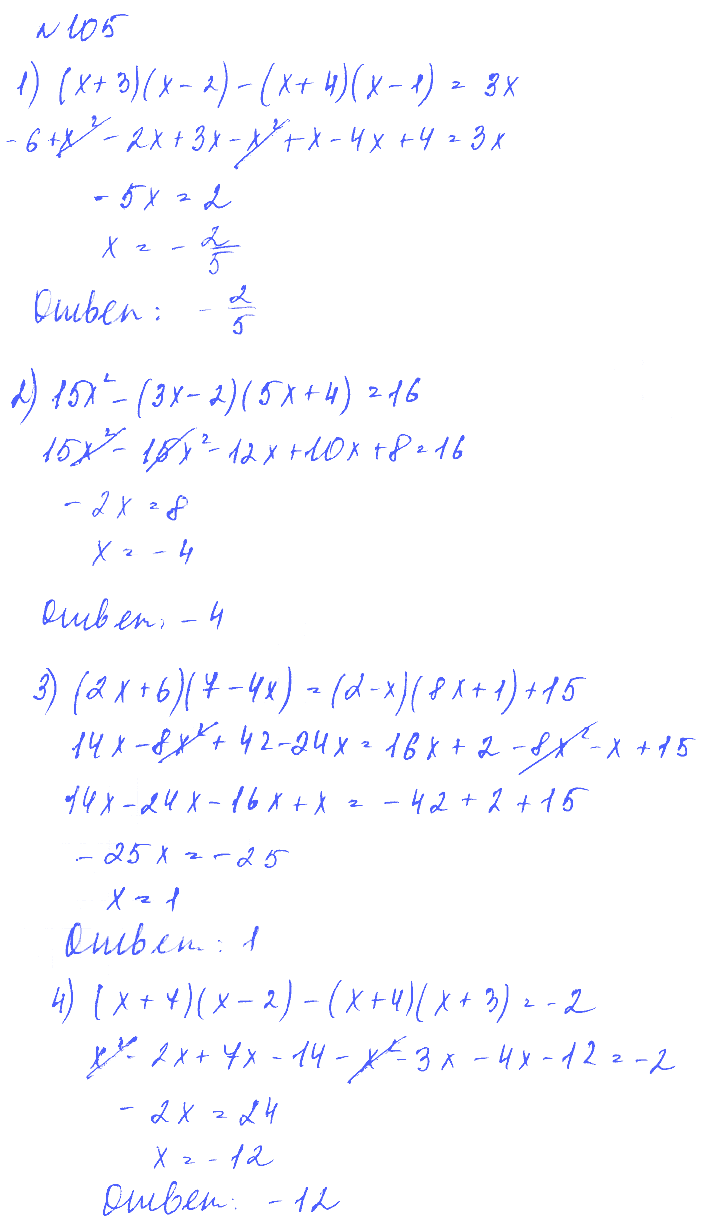 №105
1) (x+3)(x-2)-(x+4)(x-1) = 3x
-6+x²-2x+3x-x²+x-4x+4=3x
-5x=2
x = -2/5
Ответ: -2/5
2) 15x²-(3x-2)(5x+4)=16
15x²-15x²-12x+10x+8=16
-2x=8
x=-4
Ответ: -4
3) (2x+6)(7-4x)=(2-x)(8x+1)+15
14x-8x²+42-24x=16x+2-8x²-x+15
14x-24x-16x+x = -42+2+15
-25x=-25
x=1
Ответ: 1
4) (x+7)(x-2)-(x+4)(x+3)=-2
x²-2x+7x-14-x²-3x-4x-12=-2
-2x=24
x=-12
Ответ: -12